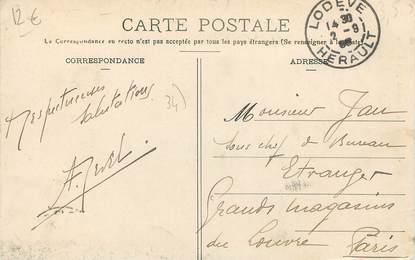 12 €
CARTE POSTALE
La Correspondance au recto n'est pas acceptée par tous les pays étrangers (Se renseigner à la
CORRESPONDANCE
ADRESSE
LODEVE
14 30
2 - 9
HERAULT
Respectueuses
Salutations
34)
A.
Monsieur Jau
Sous chef de Bureau
Etranger
Grands magasins
du Louvre Paris